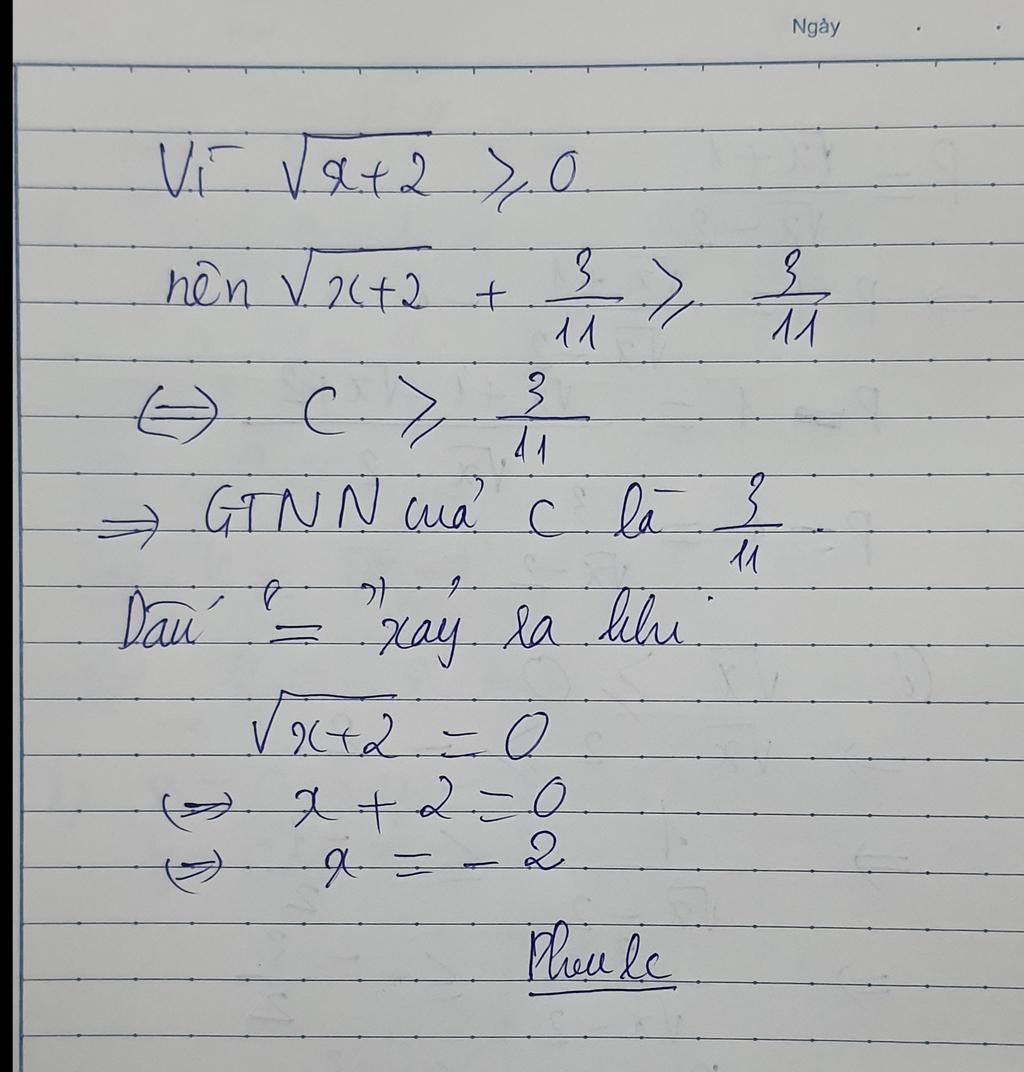 Ngày
Vì √(x+2) ≥ 0
nên √(x+2) + 3/11 ≥ 3/11
⇔ C ≥ 3/11
⇒ GTNN của C là 3/11
Dấu "=" xảy ra khi
√(x+2) = 0
⇔ x + 2 = 0
⇔ x = -2